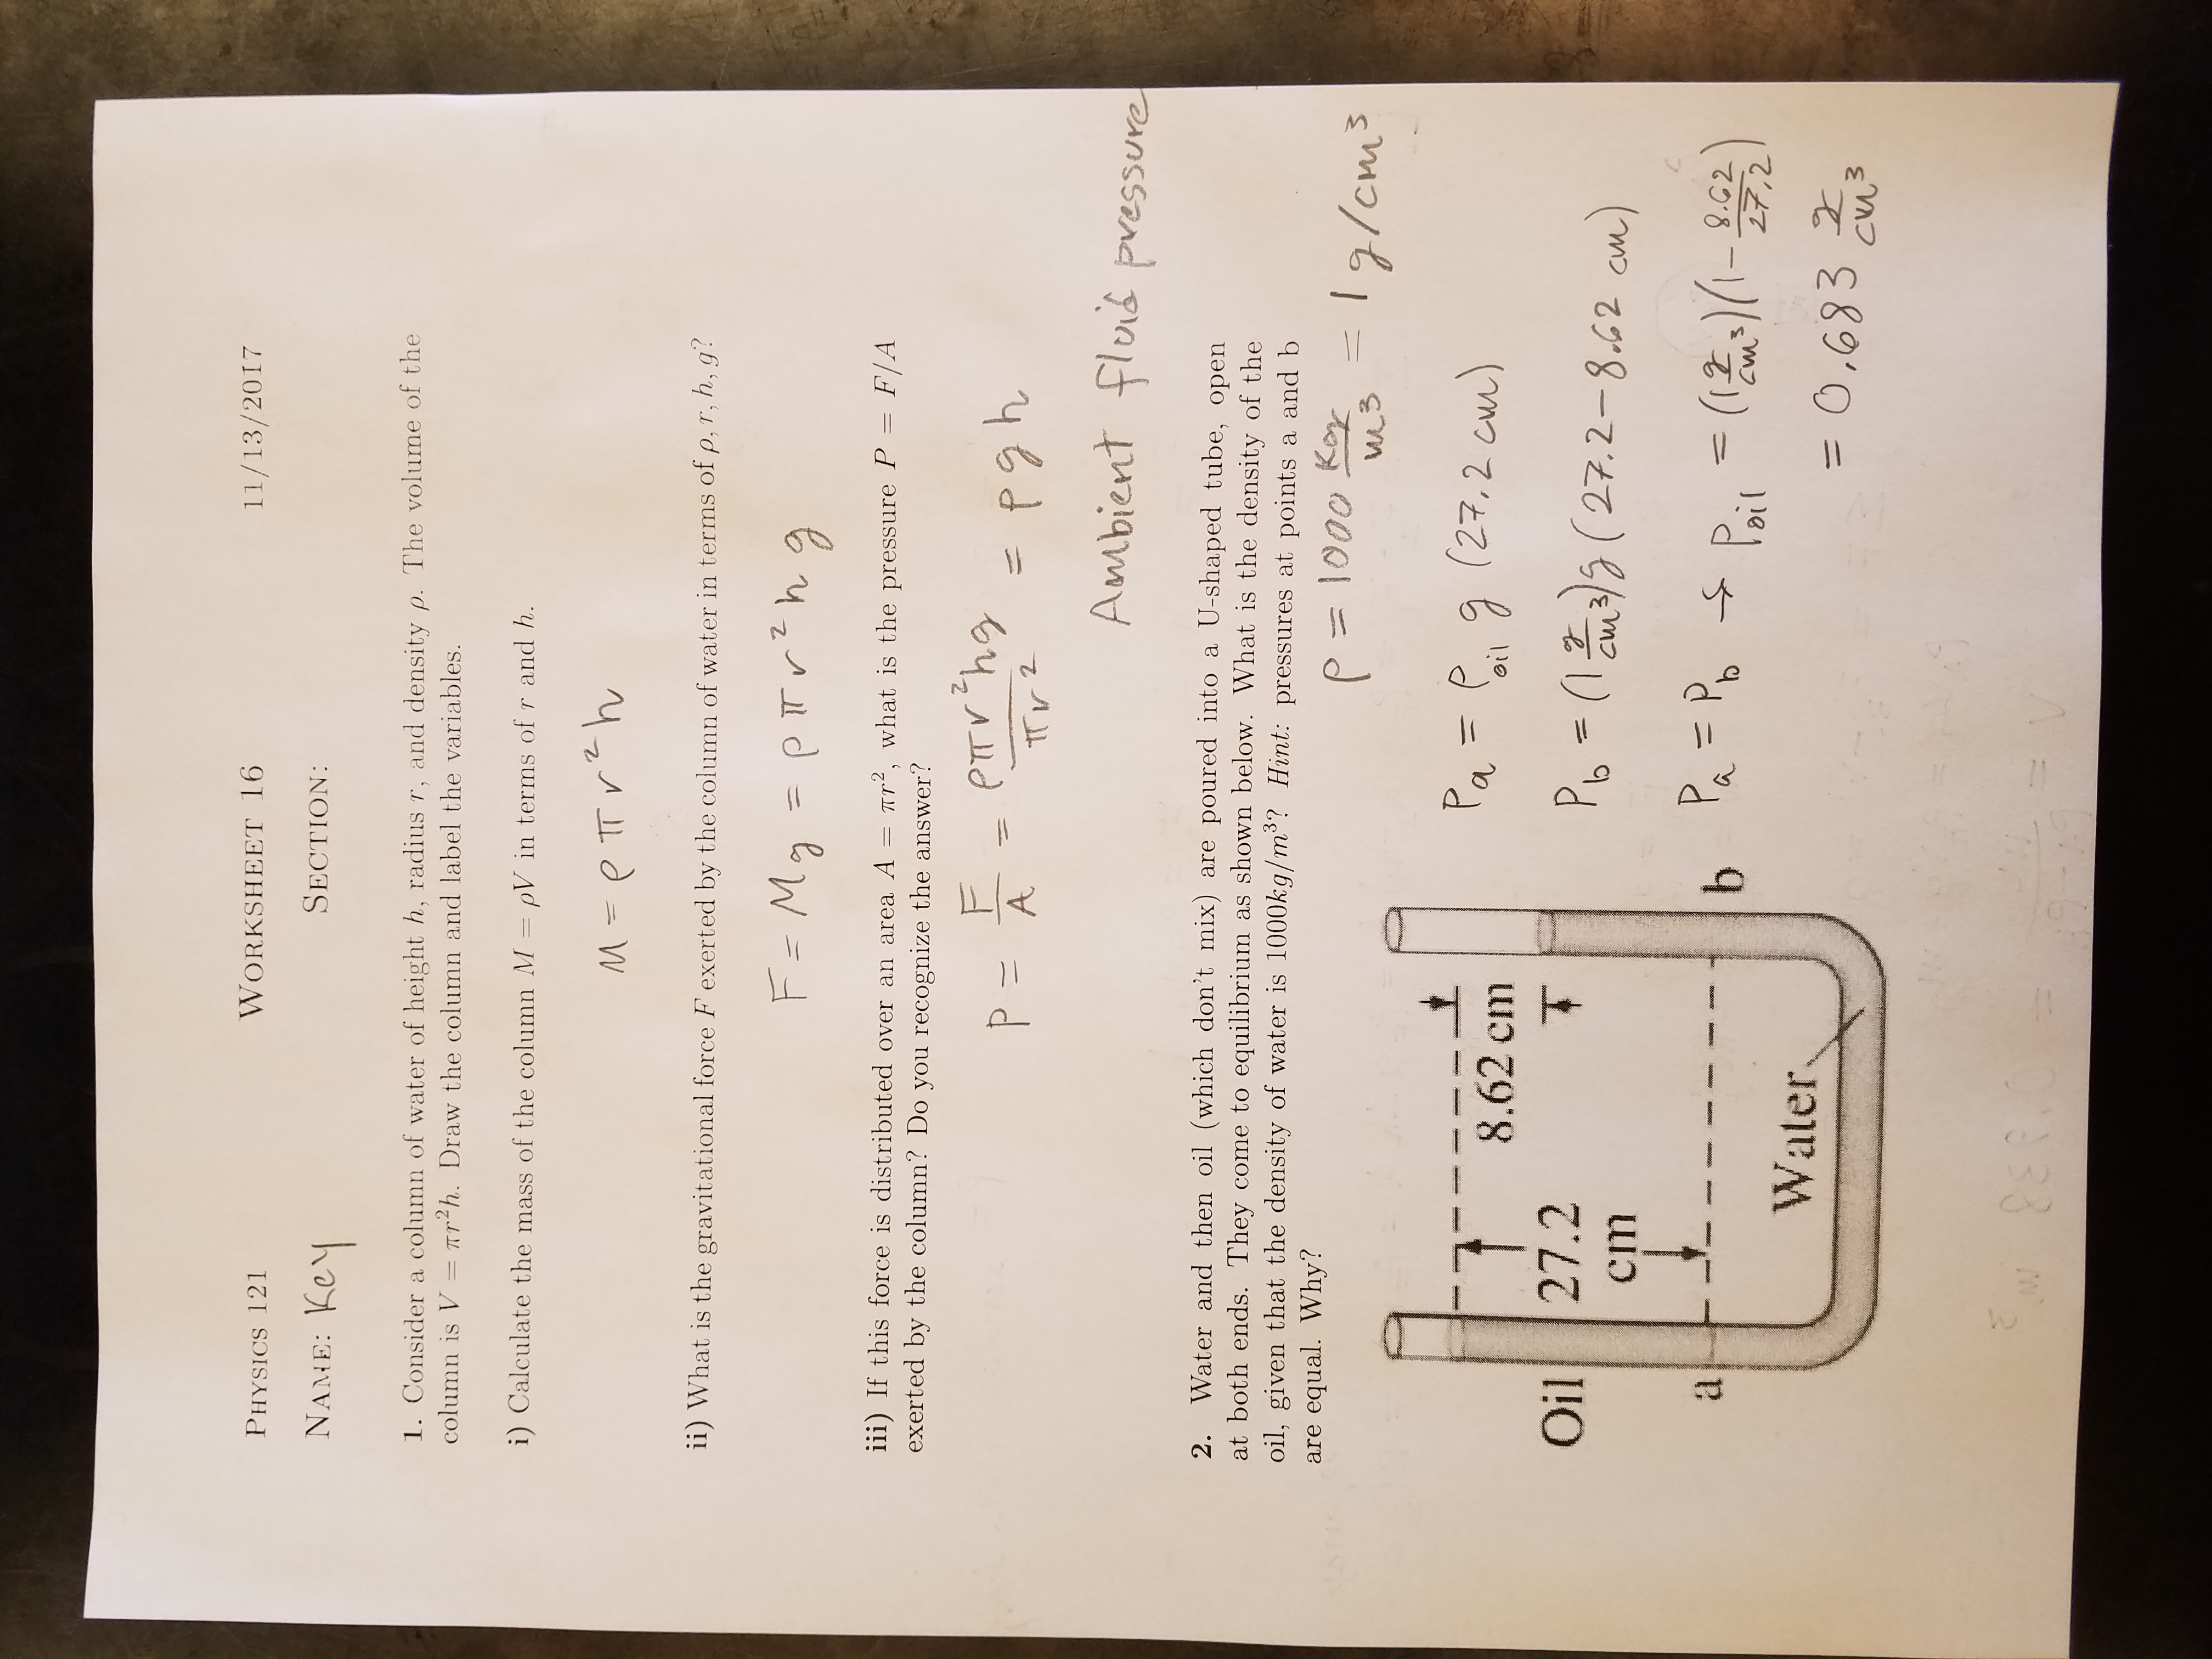 PHYSICS 121 WORKSHEET 16 11/13/2017
NAME: Key SECTION:
1. Consider a column of water of height h, radius r, and density ρ. The volume of the
column is V = πr²h. Draw the column and label the variables.
i) Calculate the mass of the column M = ρV in terms of r and h.
M = ρπr²h
ii) What is the gravitational force F exerted by the column of water in terms of ρ, r, h, g?
F = Mg = ρπr²hg
iii) If this force is distributed over an area A = πr², what is the pressure P = F/A
exerted by the column? Do you recognize the answer?
P = F/A = ρπr²hg/πr² = ρgh
Ambient fluid pressure
2. Water and then oil (which don't mix) are poured into a U-shaped tube, open
at both ends. They come to equilibrium as shown below. What is the density of the
oil, given that the density of water is 1000kg/m³? Hint: pressures at points a and b
are equal. Why?
ρ = 1000 kg/m³ = 1 g/cm³
8.62 cm
Oil 27.2
cm
a b
Water
Pa = ρoil g (27.2 cm)
Pb = (1 g/cm³)g(27.2-8.62 cm)
Pa = Pb → ρoil = (1 g/cm³)(1 - 8.62/27.2)
= 0.683 g/cm³